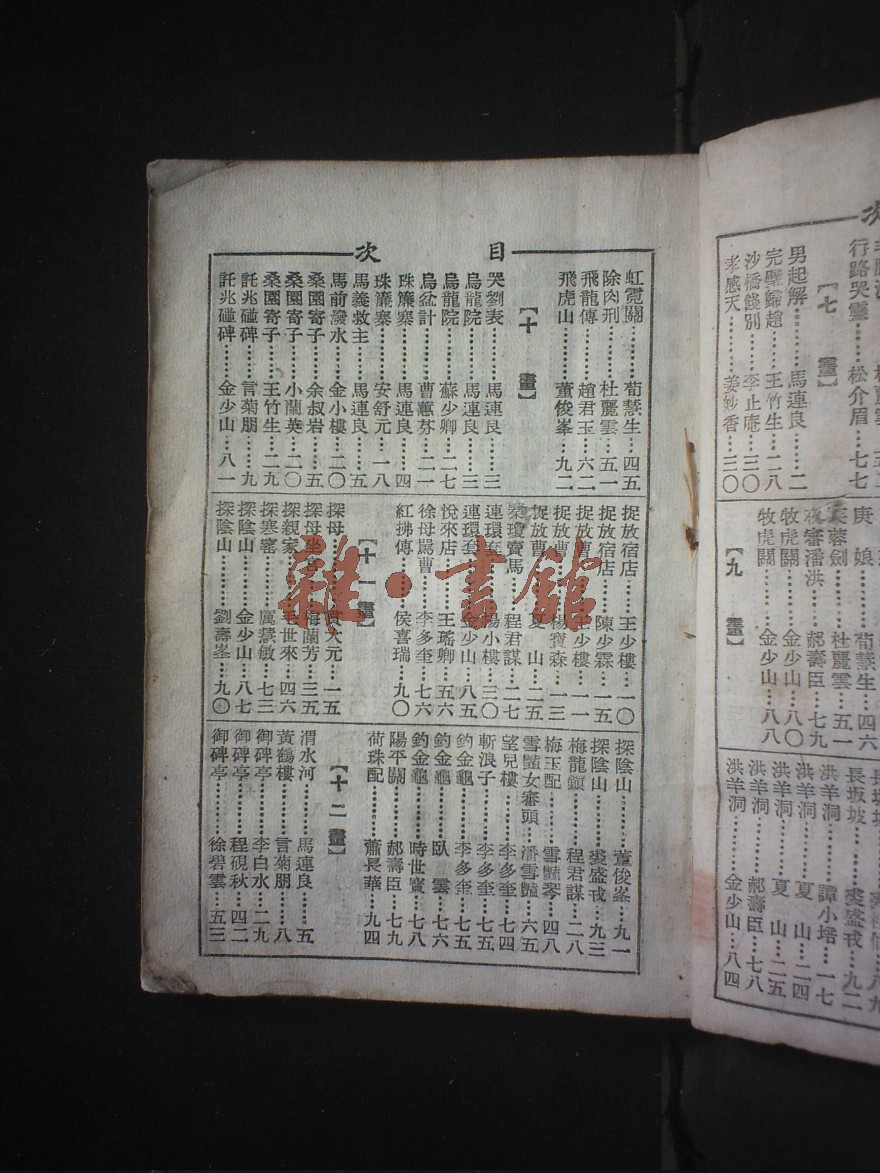 目次
虹霓關………荀慧生…四五
除肉刑………杜麗雲…五一
飛龍傳………趙君玉…六二
飛虎山………董俊峯…九二
【十畫】
哭劉表………馬連良…三
烏龍院………馬連良…三
烏龍院………蘇少卿…二七
烏盆計………曹蕙芬…二一
珠簾寨………馬連良…四
珠簾寨………安舒元…一八
馬義救主……馬連良…五
馬前潑水……金小樓…二〇
桑園寄子……余叔岩…五
桑園寄子……小蘭英…二〇
桑園寄子……王竹生…二九
託兆碰碑……言菊朋…九
託兆碰碑……金少山…八一
捉放宿店……王少樓…一〇
捉放宿店……陳少霖…一五
捉放曹………王少樓…一一
捉放曹………楊寶森…一三
捉放曹………夏山…二五
秦瓊賣馬……程君謀…二七
連環套………楊小樓…三〇
連環套………金少山…八五
悅來店………王瑤卿…五六
徐母罵曹……李多奎…七六
紅拂傳………侯喜瑞…九〇
【十一畫】
探母…貫大元…一五
探母坐宮……梅蘭芳…三五
探親家………毛世來…四六
探寒窰………厲慧敏…七三
探陰山………金少山…八七
探陰山………劉壽峯…九〇
探陰山………董俊峯…九一
探陰山………裘盛戎…九三
梅龍鎮………程君謀…二八
梅玉配………雪艷琴…四八
雪艷女審頭…潘雪艷…六五
望兒樓………李多奎…七四
斬浪子………李多奎…七五
釣金龜………李多奎…七五
釣金龜………臥雲…七六
釣金龜………時世寶…七八
陽平關………郝壽臣…七九
荷珠配………蕭長華…九四
【十二畫】
渭水河………馬連良…五
黃鶴樓………言菊朋…八
御碑亭………李白水…二九
御碑亭………程硯秋…四二
御碑亭………徐碧雲…五三
次
行路哭靈……松介眉…七七
【七畫】
男起解………馬連良…二
完璧歸趙……王竹生…二八
沙橋餞別……李止庵…三〇
孝感天………姜妙香…三〇
庚娘…荀慧生…四六
芙蓉劍………杜麗雲…五一
夜審潘洪……郝壽臣…七九
牧虎關………金少山…八〇
牧虎關………金少山…八八
【九畫】
長坂坡
長坂坡………裘盛戎…九二
洪羊洞………譚小培…一七
洪羊洞………夏山…二四
洪羊洞………夏山…二五
洪羊洞………郝壽臣…七八
洪羊洞………金少山…八四
雜·書館